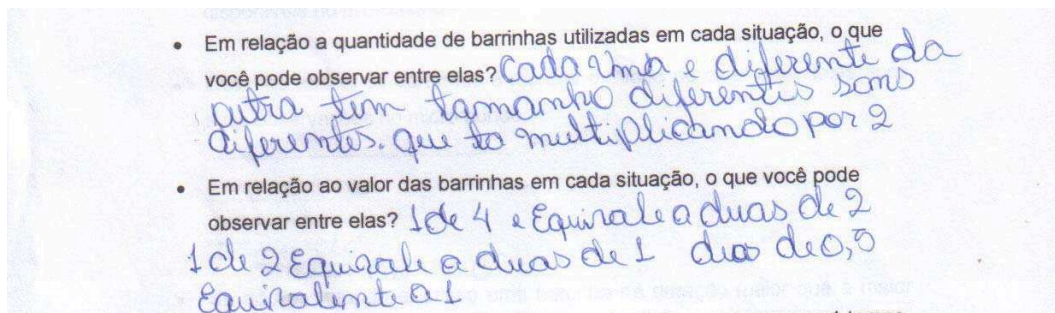 • Em relação a quantidade de barrinhas utilizadas em cada situação, o que
você pode observar entre elas? Cada uma e diferente da
outra tem tamanho diferentes sons
diferentes. que to multiplicando por 2
• Em relação ao valor das barrinhas em cada situação, o que você pode
observar entre elas? 1 de 4 e Equivale a duas de 2
1 de 2 Equivale a duas de 1 duas de 0,5
Equivalente a 1